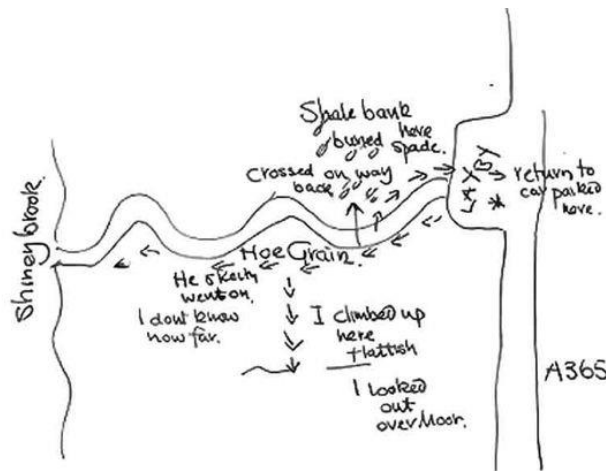 Shale bank
buried here
spade.
Crossed on way
back
LAY BY
return to
car parked
here.
Shiney brook.
Hoe Grain.
He & Keith
went on.
I dont know
how far.
I climbed up
here
flattish
I looked
out
over Moor.
A365